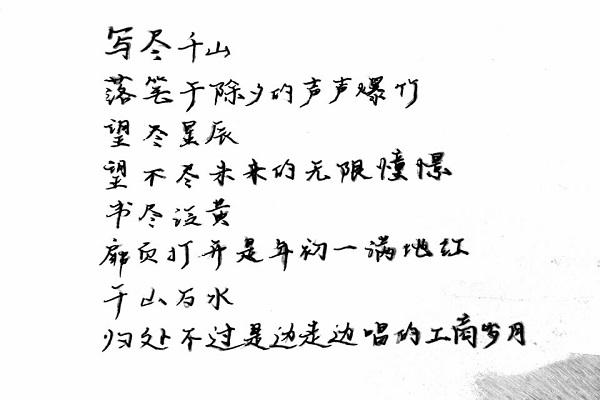 写尽千山
落笔于除夕的声声爆竹
望尽星辰
望不尽未来的无限憧憬
书尽泛黄
扉页打开是年初一满地红
千山万水
归处不过是边走边唱的工商岁月